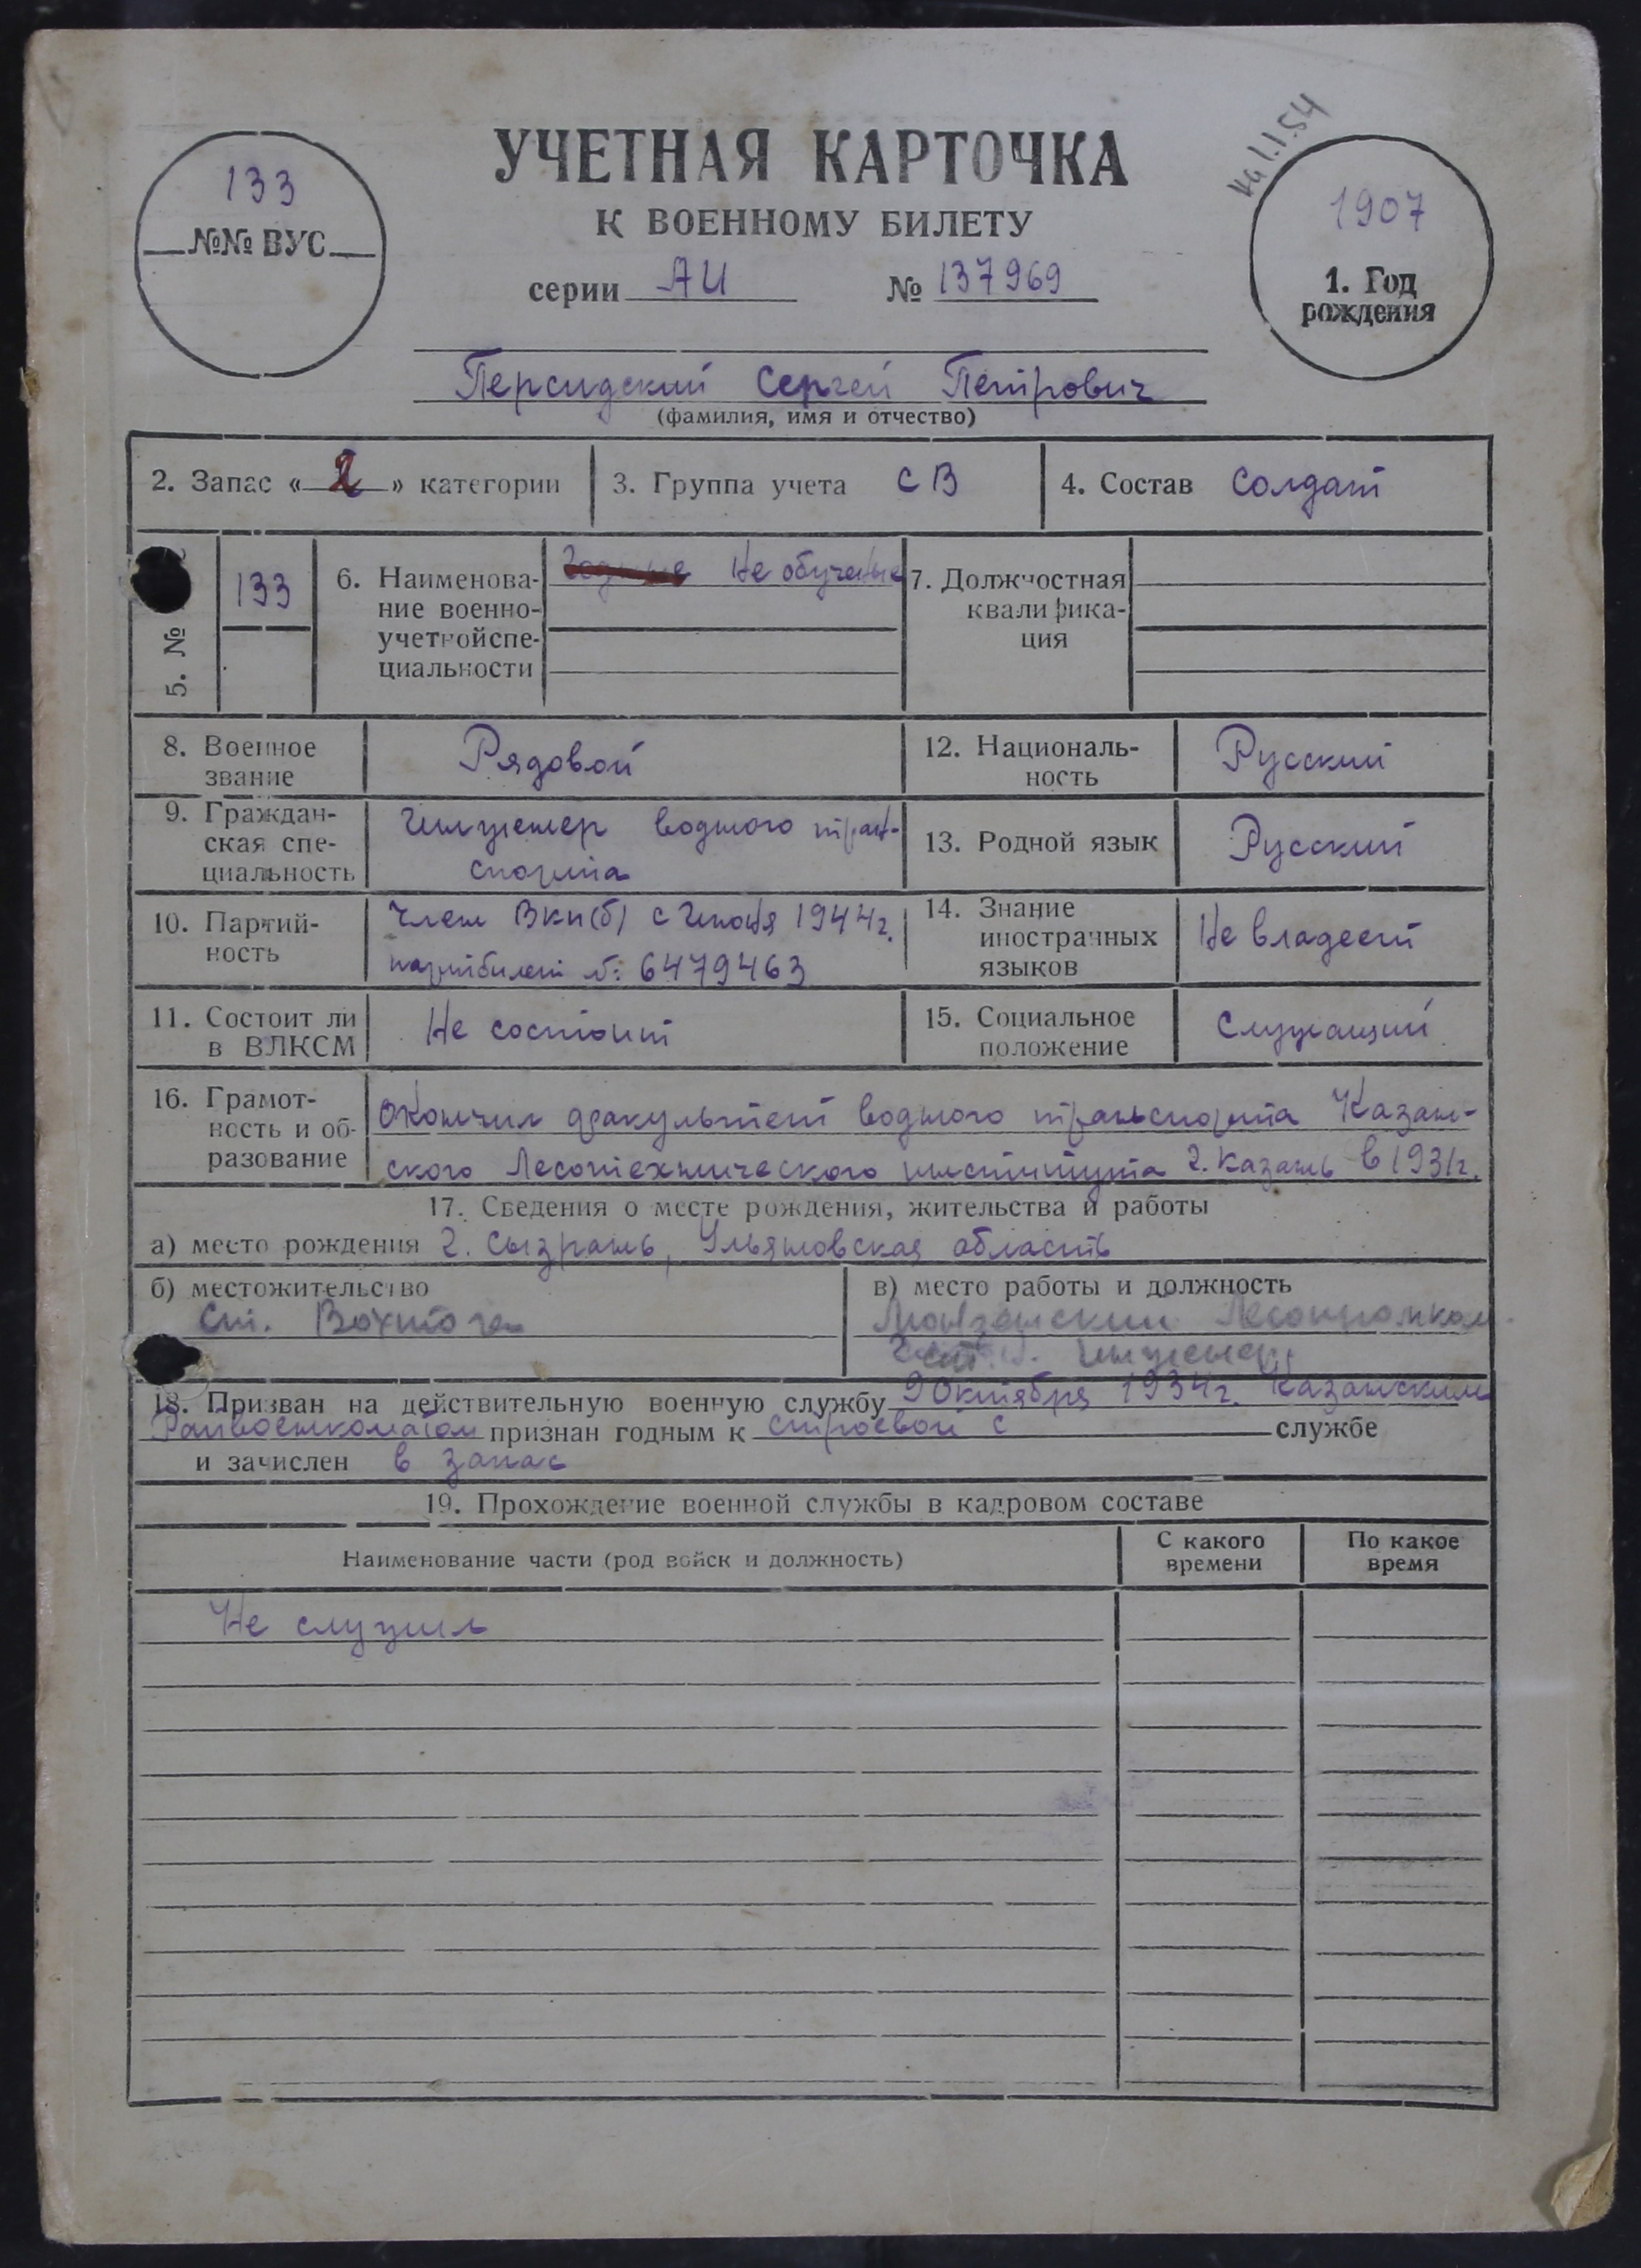 на 1.1.54
133
№№ ВУС
УЧЕТНАЯ КАРТОЧКА
К ВОЕННОМУ БИЛЕТУ
серии АИ № 137969
1907
1. Год
рождения
Персидский Сергей Петрович
(фамилия, имя и отчество)
2. Запас « 2 » категории
3. Группа учета СВ
4. Состав Солдат
5. №
133
6. Наименова-
ние военно-
учетной спе-
циальности
Годные Не обученые
7. Должностная
квалифика-
ция
8. Военное
звание
Рядовой
12. Националь-
ность
Русский
9. Граждан-
ская спе-
циальность
Инженер водного тран-
спорта
13. Родной язык
Русский
10. Партий-
ность
Член ВКП(б) с 1944 г.
партбилет №: 6479463
14. Знание
иностранных
языков
Не владеет
11. Состоит ли
в ВЛКСМ
Не состоит
15. Социальное
положение
Служащий
16. Грамот-
ность и об-
разование
Окончил факультет водного транспорта Казан-
ского Лесотехнического института г. Казань в 1931 г.
17. Сведения о месте рождения, жительства и работы
а) место рождения г. Сызрань, Ульяновская область
б) местожительство
Ст. Вохтога
в) место работы и должность
Монзенский Леспромхоз
инженер
18. Призван на действительную военную службу 9 Октября 1934 г. Казанским
Райвоенкоматом признан годным к строевой с службе
и зачислен в запас
19. Прохождение военной службы в кадровом составе
Наименование части (род войск и должность)
С какого
времени
По какое
время
Не служил